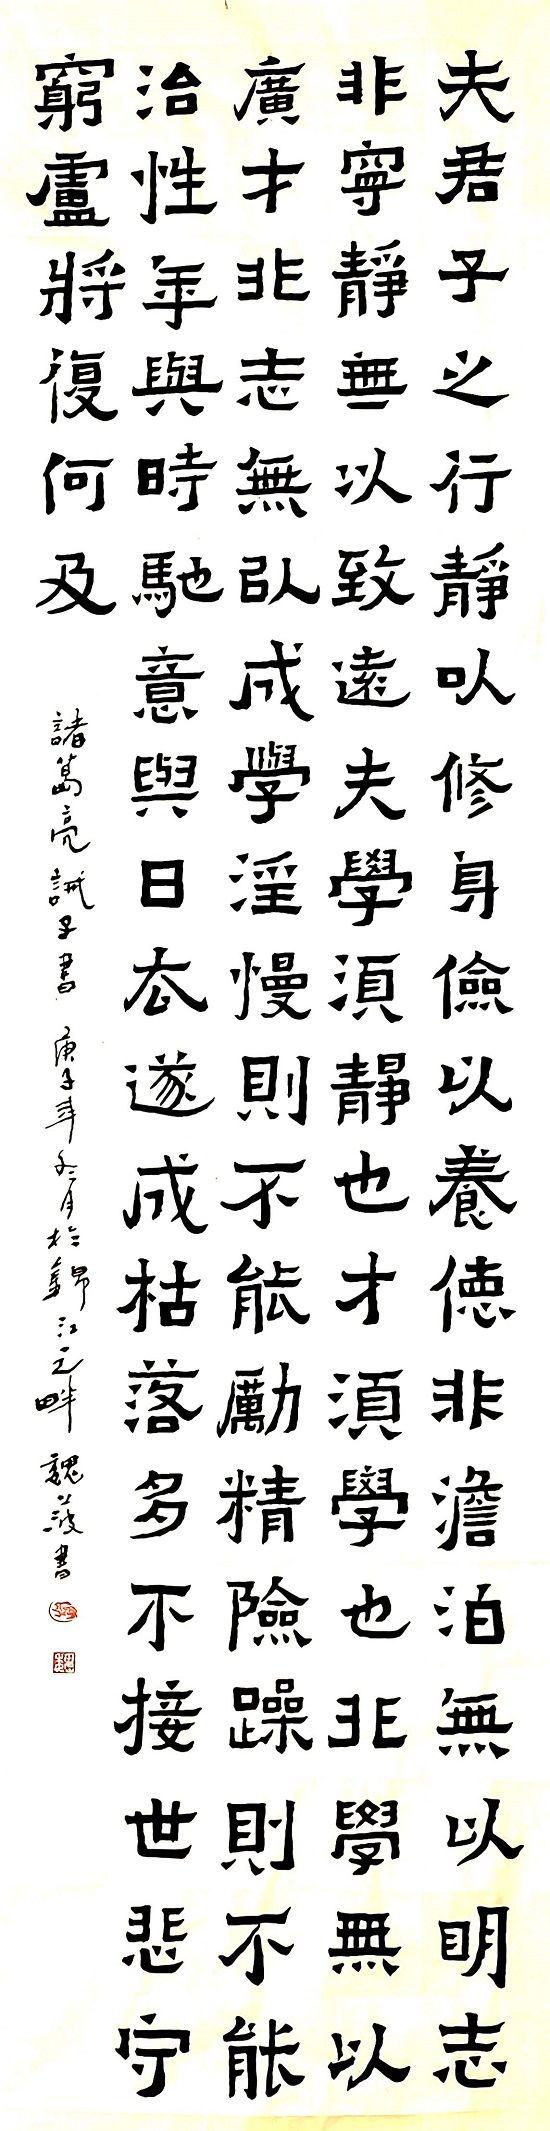 夫君子之行靜以修身儉以養德非澹泊無以明志
非寧靜無以致遠夫學須靜也才須學也非學無以
廣才非志無以成學淫慢則不能勵精險躁則不能
治性年與時馳意與日去遂成枯落多不接世悲守
窮盧將復何及
諸葛亮誡子書 庚子年冬月於錦江之畔 魏書